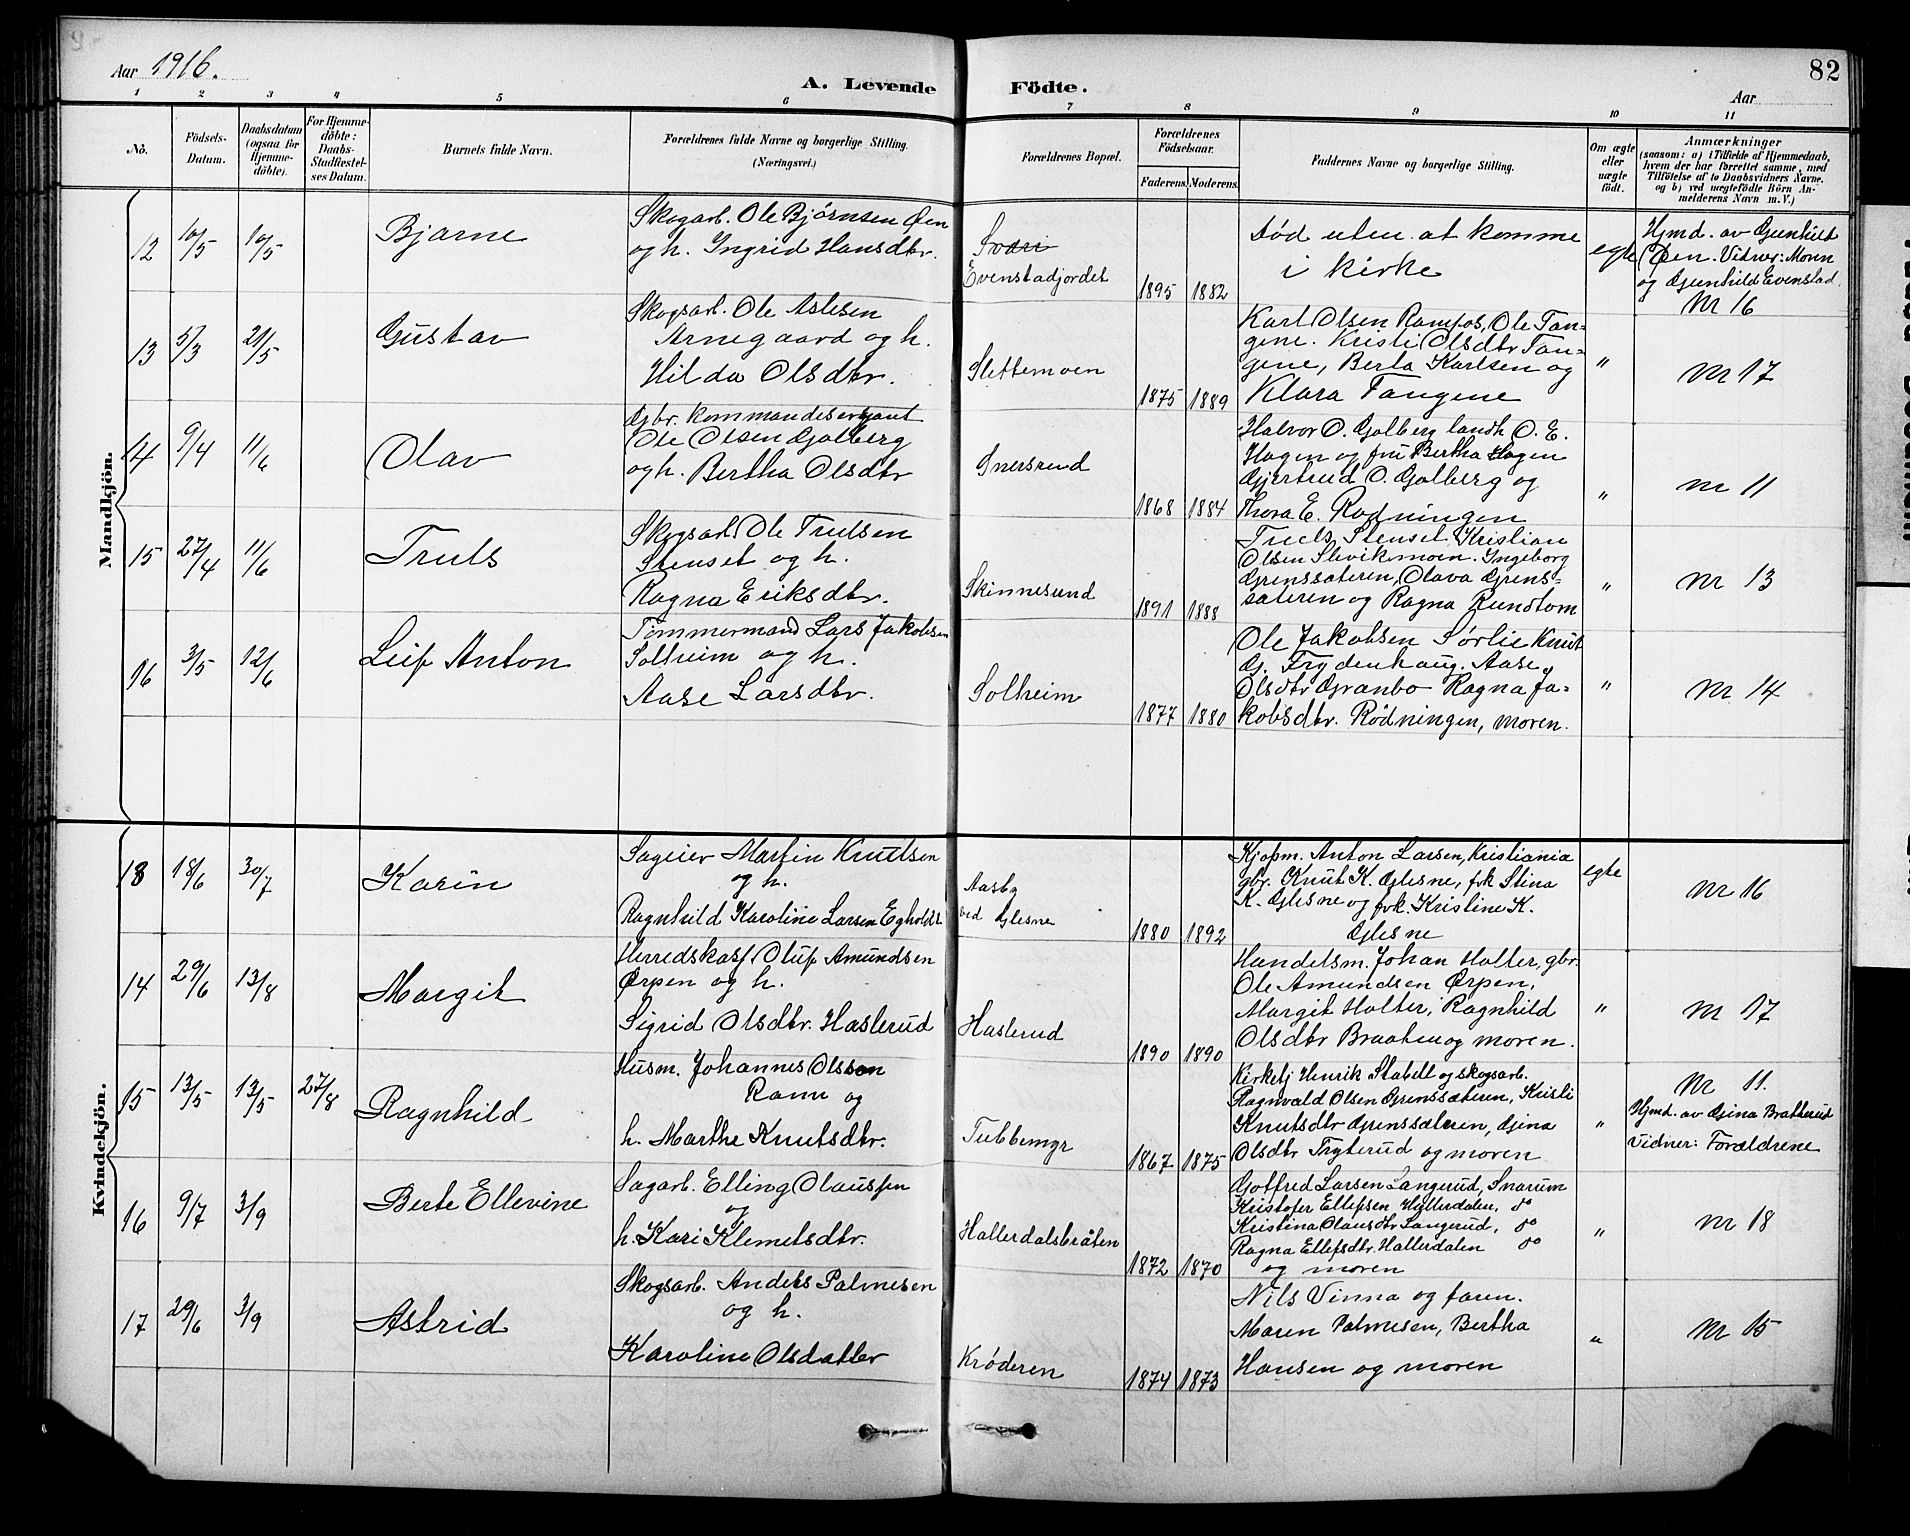 Aar 1916.
A. Levende Födte.
82
Aar
1 2 3 4 5 6 7 8 9 10 11
No.
Födsels-Datum.
Daabsdatum (ogsaa for Hjemme-döbte).
For Hjemme-döbte: Daabs-Stadfæstel-ses Datum.
Barnets fulde Navn.
Forældrenes fulde Navne og borgerlige Stilling.
(Næringsvei.)
Forældrenes Bopæl.
Forældrenes Födselsaar.
Faderens. Moderens.
Faddernes Navne og borgerlige Stilling.
Om ægte eller uægte födt.
Anmærkninger
(saasom: a) i Tilfælde af Hjemmedaab,
hvem der har forrettet samme, med
Tilföielse af to Daabsvidners Navne,
og b) ved uægtefödte Börn An-
melderens Navn m. V.)
Mandkjön.
12 10/5 10/5 Bjarne
Skogarb. Ole Bjørnsen Øen
og h. Ingrid Hansdtr.
Svari
Evenstadjordet
1895 1882
Død uten at komme
i kirke
egte
Hjmd. av Gunhild
Øen. Vidner: Moren
og Gunhild Evenstad.
Nr 16
13 5/3 21/5 Gustav
Skogsarb. Ole Aslesen
Arnegaard og h.
Hilda Olsdtr.
Slettemoen
1875 1889
Karl Olsen Ramfos, Ole Tan-
gene. Kristi Olsdtr Tan-
gene, Berta Karlsen og
Klara Tangene
"
Nr 17
14 9/4 11/6 Olav
Gbr. kommandersergant
Ole Olsen Golberg
og h. Bertha Olsdtr
Snersrud
1868 1884
Halvor O. Golberg landh O. E.
Hagen og fru Bertha Hagen
Gjertrud O. Golberg og
Thora E. Rodningen
"
nr 11
15 27/4 11/6 Truls
Skogsarb. Ole Trulsen
Stenset og h.
Ragna Eriksdtr.
Skinnesund
1891 1888
Truls Stenset. Kristian
Olsen Slevikmoen. Ingeborg
Grenssæteren, Olava Grens-
sæteren og Ragna Rundtom
"
Nr 13
16 3/5 12/6 Leif Anton
Tømmermand Lars Jakobsen
Solheim og h.
Aase Larsdtr.
Solheim
1877 1880
Ole Jakobsen Sørlie Knut
G. Frydenhaug. Aase
Olsdtr Granbo Ragna Ja-
kobsdtr. Rødningen, moren.
"
Nr 14
Kvindekjön.
13 18/6 30/7 Karin
Sageier Martin Knutsen
og h.
Ragnhild Karoline Larsen Egholdt
Aasby
ved Glesne
1880 1892
Kjøpm. Anton Larsen, Kristiania
gbr. Knut K. Glesne, frk Stina
K. Glesne og frk. Kristine K.
Glesne
egte
Nr 16
14 29/6 13/8 Margit
Herredskasf Oluf Amundsen
Ørpen og h.
Sigrid Olsdtr. Haslerud
Haslerud
1890 1890
Handelsm. Johan Holter, gbr.
Ole Amundsen Ørpen,
Margit Holter, Ragnhild
Olsdtr Braaten og moren.
"
Nr 17
15 13/5 13/5 27/8 Ragnhild
Husm. Johannes Olsson
Ramu og
h. Marthe Knutsdtr.
Tubbemyr
1867 1875
Kirketj Henrik Stabell og skogsarb.
Ragnvald Olsen Grenssæteren, Kristi
Knutsdtr Grenssæteren, Gina
Olsdtr Tryterud og moren
"
Nr 11.
Hjmd. av Gina Bratterud
Vidner: Forældrene
16 9/7 3/9 Berte Ellevine
Sagarb. Elling Olaussen
og
h. Kari Klemetsdtr.
Hallerdalsbråten
1872 1870
Gotfred Larsen Langerud, Snarum
Kristofer Ellefsen Hallerdalen, do
Kristina Olausdtr Langerud, do
Ragna Ellefsdtr. Hallerdalen do
og moren
"
Nr 18
17 29/6 3/9 Astrid
Skogsarb. Anders Palmesen
og h.
Karoline Olsdatter
Krøderen
1874 1873
Nils Vinna og faren.
Maren Palmesen, Bertha
Hansen og moren
"
Nr 15